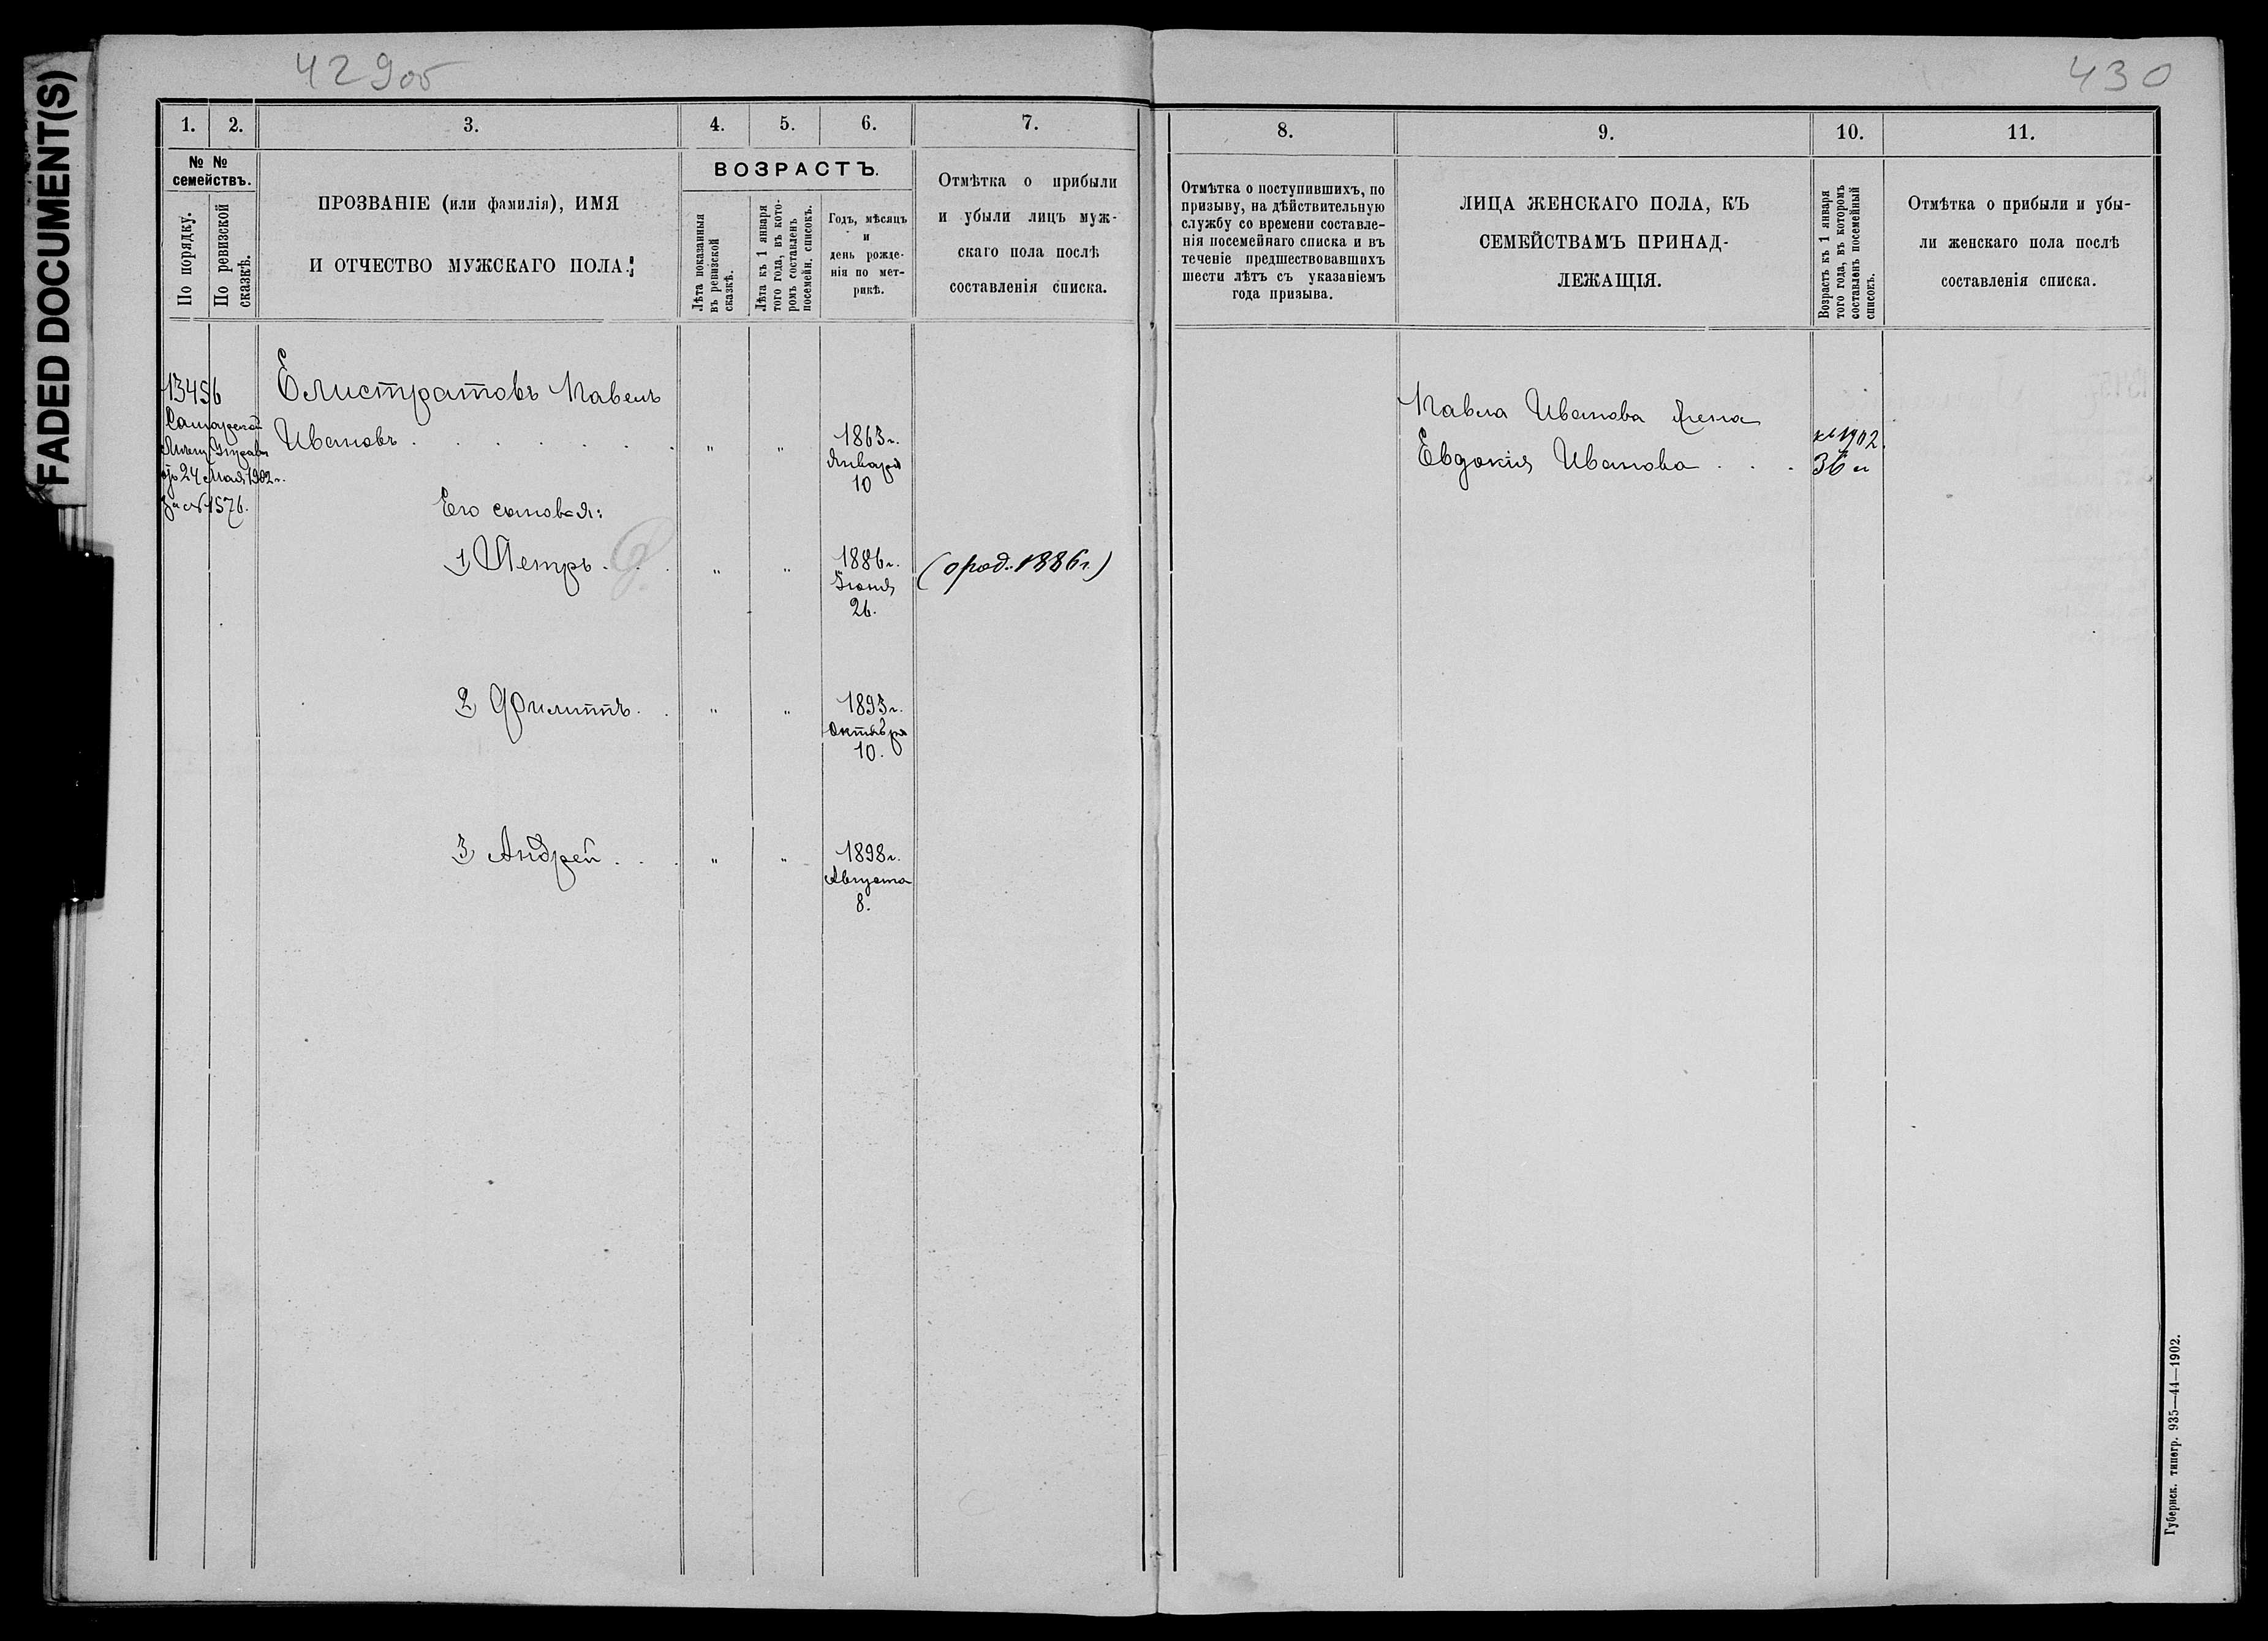 FADED DOCUMENT(S)
429об
430
1.
2.
3.
4.
5.
6.
7.
8.
9.
10.
11.
№ №
семействъ.
По порядку.
По ревизской
сказкѣ.
ПРОЗВАНІЕ (или фамилія), ИМЯ
И ОТЧЕСТВО МУЖСКАГО ПОЛА.
ВОЗРАСТЪ.
Лѣта показанныя
въ ревизской
сказкѣ.
Лѣта къ 1 января
того года, въ кото-
ромъ составленъ
посемейн. списокъ.
Годъ, мѣсяцъ
и
день рожде-
нія по мет-
рикѣ.
Отмѣтка о прибыли
и убыли лицъ муж-
скаго пола послѣ
составленія списка.
Отмѣтка о поступившихъ, по
призыву, на дѣйствительную
службу со времени составле-
нія посемейнаго списка и въ
теченіе предшествовавшихъ
шести лѣтъ съ указаніемъ
года призыва.
ЛИЦА ЖЕНСКАГО ПОЛА, КЪ
СЕМЕЙСТВАМЪ ПРИНАД-
ЛЕЖАЩІЯ.
Возрастъ къ 1 января
того года, въ которомъ
составленъ посемейный
списокъ.
Отмѣтка о прибыли и убы-
ли женскаго пола послѣ
составленія списка.
13456
Самарской
Мѣщ. Управы
отъ 24 Мая 1902 г.
за № 1576.
Елистратовъ Павелъ
Ивановъ . . . . . . " "
1863 г.
Января
10
Его сыновья:
1) Петръ . . . " "
1886 г.
Іюня
26.
(о род. 1886 г.)
2) Филиппъ . . " "
1893 г.
Октября
10.
3) Андрей . . . " "
1898 г.
Августа
8.
Павла Иванова жена
Евдокія Иванова . . .
къ 1902
36 л
Губернск. типогр. 935—44—1902.